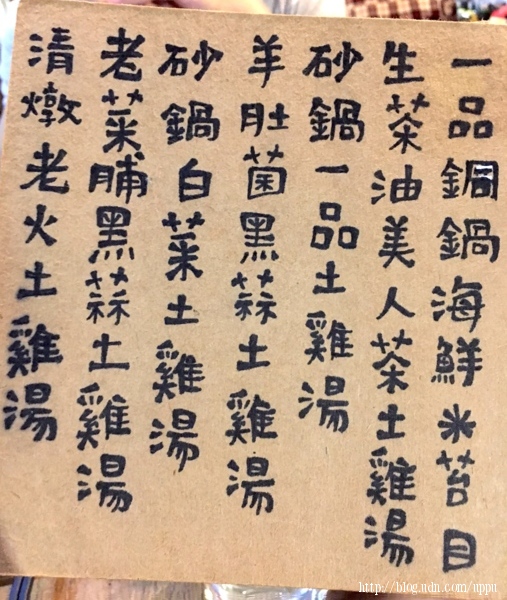 一品銅鍋海鮮米苔目
生茶油美人茶土雞湯
砂鍋一品土雞湯
羊肚菌黑蒜土雞湯
砂鍋白菜土雞湯
老菜脯黑蒜土雞湯
清燉老火土雞湯
http://blog.udn.com/uppu